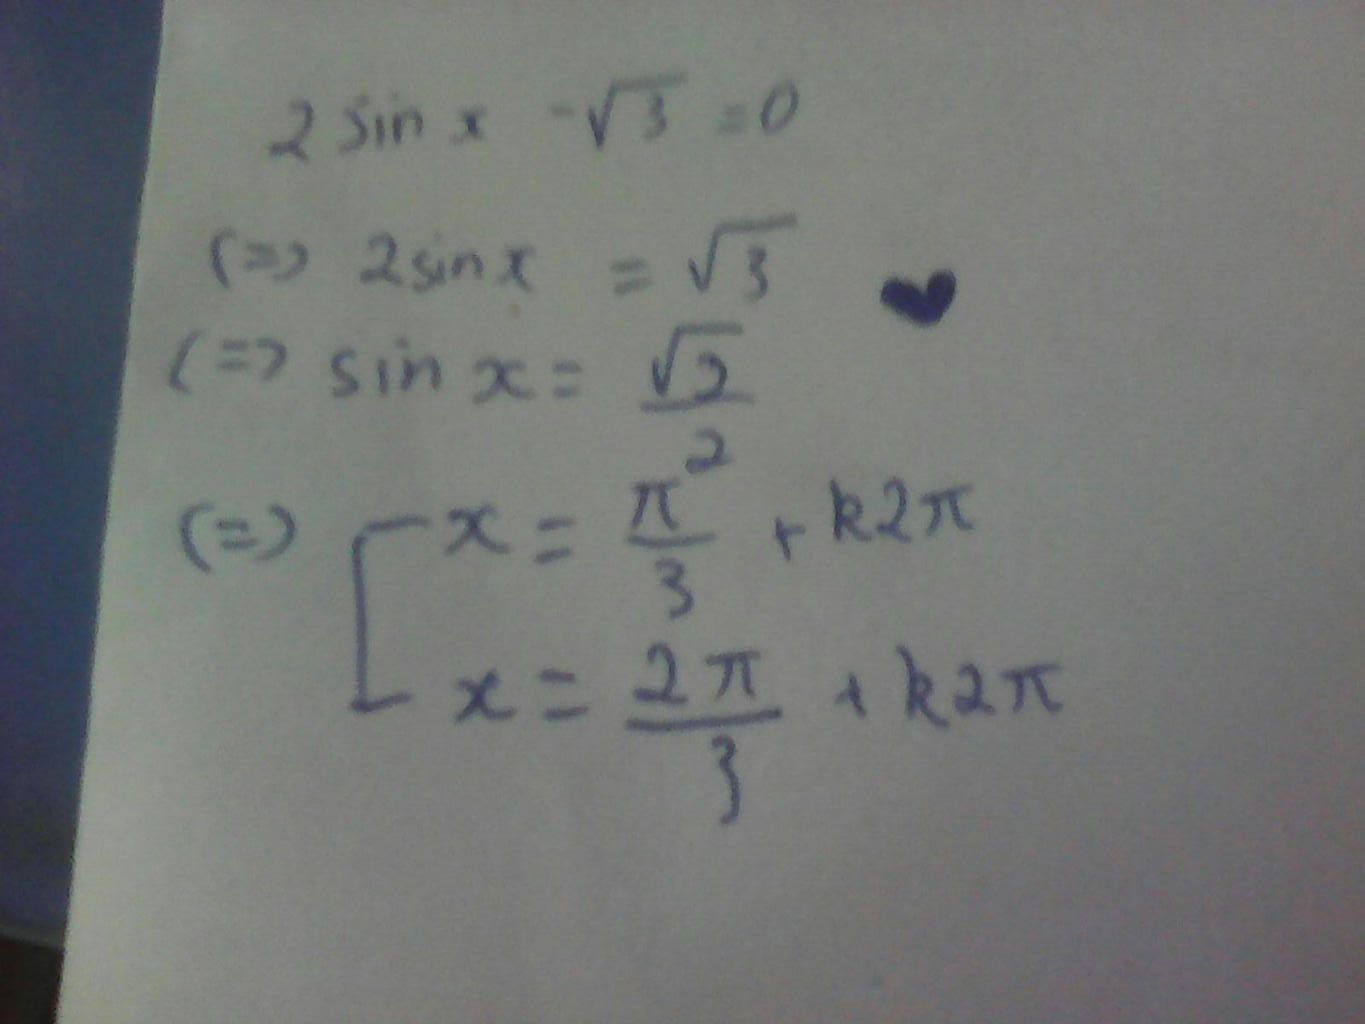 2 sin x - √3 = 0
(=) 2sin x = √3
(=) sin x = √2/2
(=) [ x = π/3 + k2π
x = 2π/3 + k2π